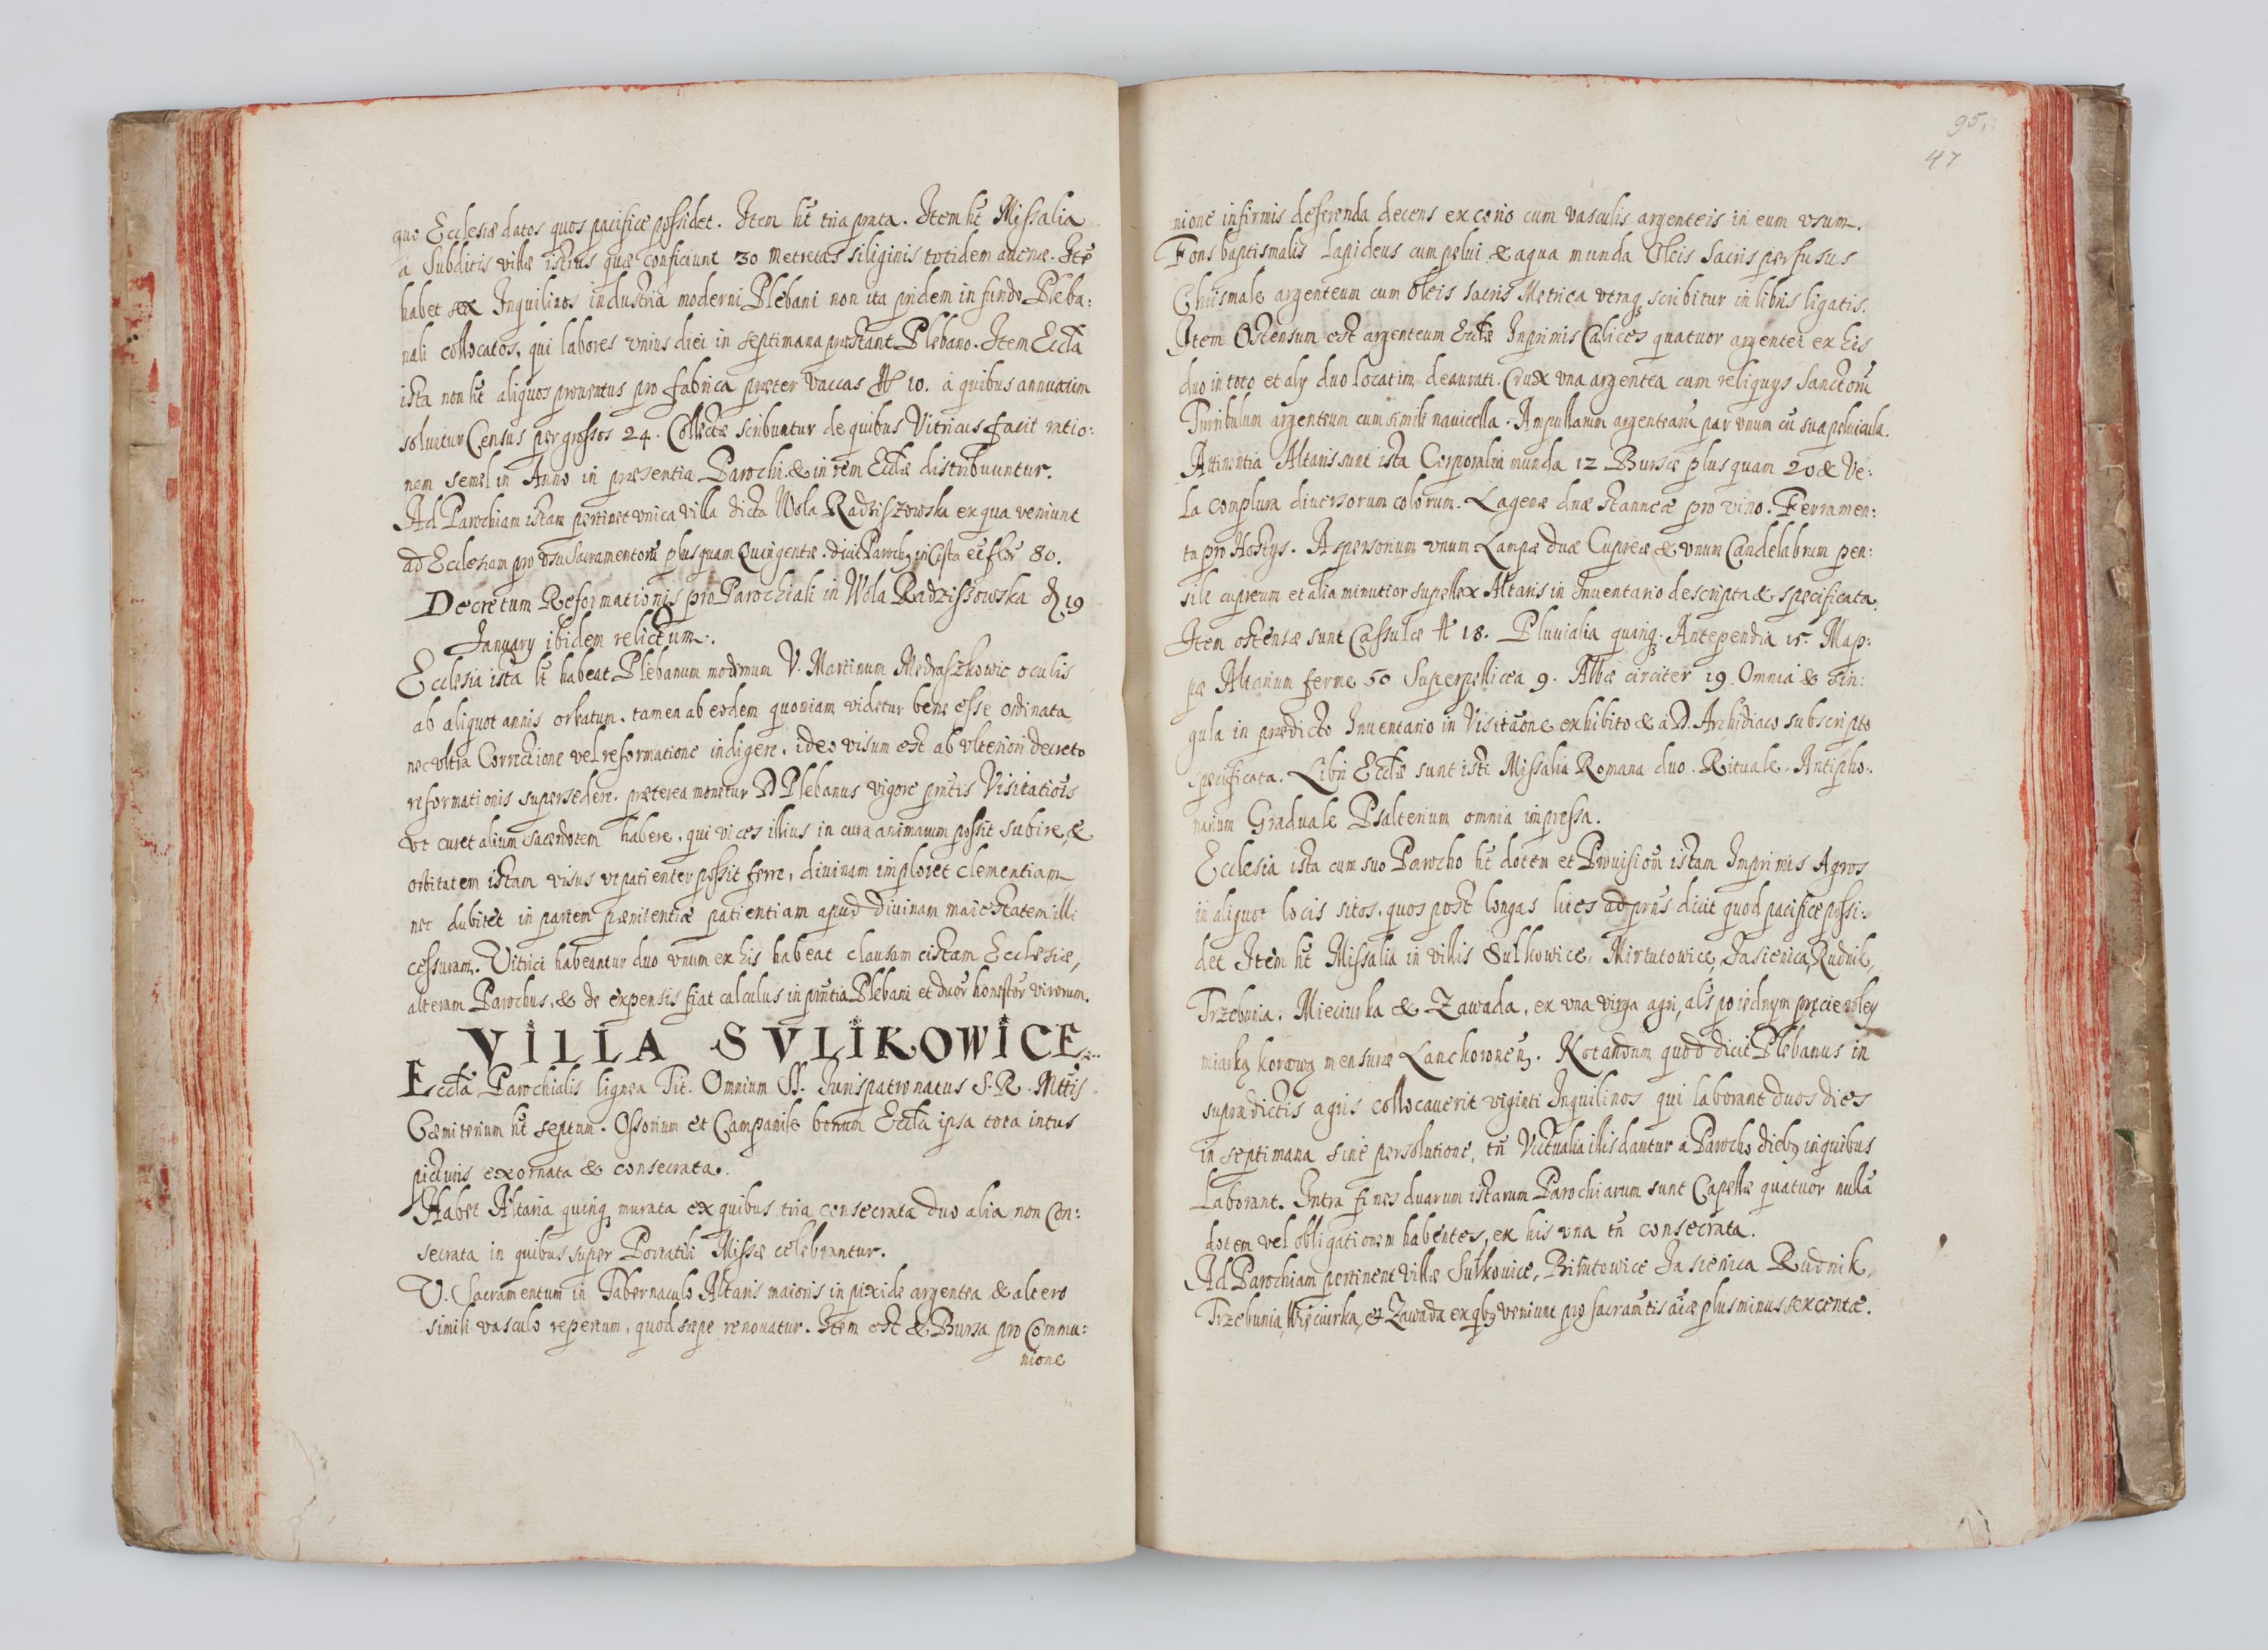 quo Ecclesiæ datos quos pacifice possidet. Item ht̃ tria prata. Item ht̃ Missalia
a Subditis villæ istius quæ conficiunt 30 metretas siliginis totidem auenæ. Itẽ
habet sex Inquilinos industria moderni Plebani non ita pridem in fundo Pleba:
nali collocatos, qui labores vnius diei in septimana præstant Plebano. Item Eccla
ista non ht̃ aliquos prouentus pro fabrica præter vaccas 10. a quibus annuatim
soluitur Census per grossos 24. Collectæ scribuntur de quibus Vitricus facit ratio:
nem semel in Anno in præsentia Parochi & in rem Ecclæ distribuuntur.
Ad Parochiam istam pertinet vnica villa dicta Wola Radziszowska ex qua veniunt
ad Ecclesiam pro vsu Sacramentorũ plusquam Quingentæ. dicit Paroch9 in Cista eẽ flor 80.
Decretum Reformationis pro Parochiali in Wola Radziszowska 19
January ibidem relictum.
Ecclesia ista ht habeat Plebanum modernum V. Martinum Medraszkowic oculis
ab aliquot annis orbatum. tamen ab eodem quoniam videtur bene esse ordinata
nec vltra Correctione vel reformatione indigere. ideo visum est ab vlteriori decreto
reformationis supersedere. præterea monetur D Plebanus vigore pñtis Visitatiõis
vt curet alium sacerdotem habere. qui vices illius in cura animarum possit subire, &
orbitatem istam visus vt patienter possit ferre, diuinam imploret clementiam
nec dubitet in partem pænitentiæ patientiam apud diuinam maiestatem illi
cessuram. Vitrici habeantur duo vnum ex his habeat clausam cistam Ecclesiæ,
alteram Parochus, & de expensis fiat calculus in pñtia Plebani et duor̃ honestor̃ virorum.
VILLA SVLIKOWICE
Eccla Parochialis lignea Tit. Omnium SS. Jurispatronatus S. R. Mttis
Cæmiterium ht̃ septum. Ossorium et Campanile bonum Eccla ipsa tota intus
picturis exornata & consecrata.
Habet Altaria quinq3 murata ex quibus tria consecrata duo alia non Con:
secrata in quibus super Portatili Missæ celebrantur.
V. Sacramentum in Tabernaculo Altaris maioris in pixide argentea & altero
simili vasculo repertum, quod sæpe renouatur. Item est & Bursa pro Commu:
nione
95.
47
nione infirmis deferenda decens ex corio cum vasculis argenteis in eum vsum.
Fons baptismalis lapideus cum pelui & aqua munda Oleis Sacris perfusus
Chrismale argenteum cum oleis sacris Metrica vtraq3 scribitur in libris ligatis.
Item Ostensum est argenteum Ecclæ Inprimis Calices quatuor argentei ex his
duo in toto et alij duo locatim deaurati. Crux vna argentea cum reliquijs Sanctorũ
Turribulum argenteum cum simili nauicella. Ampullarum argentearũ par vnum cũ sua peluicula.
Attinentia Altaris sunt ista Corporalia munda 12 Bursæ plusquam 20 & Ve:
la complura diuersorum colorum. Lagenæ duæ stanneæ pro vino. Ferramen:
ta pro Hostijs. Aspersorium vnum Lampæ duæ Cupreæ & vnum Candelabrum pen:
sile cupreum et alia minutior supellex Altaris in Inuentario descripta & specificata.
Item ostensæ sunt Cassulæ 18. Pluuialia quinq3. Antependia 15. Map:
pæ Altarium ferme 50 Superpellicea 9. Albæ circiter 19. Omnia & sin:
gula in prædicto Inuentario in Visitãone exhibito & a D. Archidiaco subscripto
specificata. Libri Ecclæ sunt isti Missalia Romana duo. Rituale. Antipho:
narium Graduale Psalterium omnia impressa.
Ecclesia ista cum suo Parocho ht̃ dotem et Prouisionẽ istam Imprimis Agros
in aliquot locis sitos, quos post longas lites ad prñs dicit quod pacifice possi:
det Item ht̃ Missalia in villis Sulkowice, Mirtutowice, Jasienica, Rudnik,
Trzebunia. Mieciurka & Zawada, ex vna virga agri, als po iednym pręcie roley
miarką korcową mensuræ Lanchoronen̄. Notandum quod dicit Plebanus in
supradictis agris collocauerit viginti Inquilinos qui laborant duos dies
in septimana sine persolutione, tñ Victualia illis dantur a Parocho dieb9 in quibus
laborant. Intra fines duarum istarum Parochiarum sunt Capellæ quatuor nullã
dotem vel obligationem habentes, ex his vna tñ consecrata.
Ad Parochiam pertinent villæ Sulkouice, Birtutowice Jasienica Rudnik,
Trzebunia, Więciurka, & Zawada ex qb9 veniunt pro sacramtis aiæ plus minus sexcentæ.